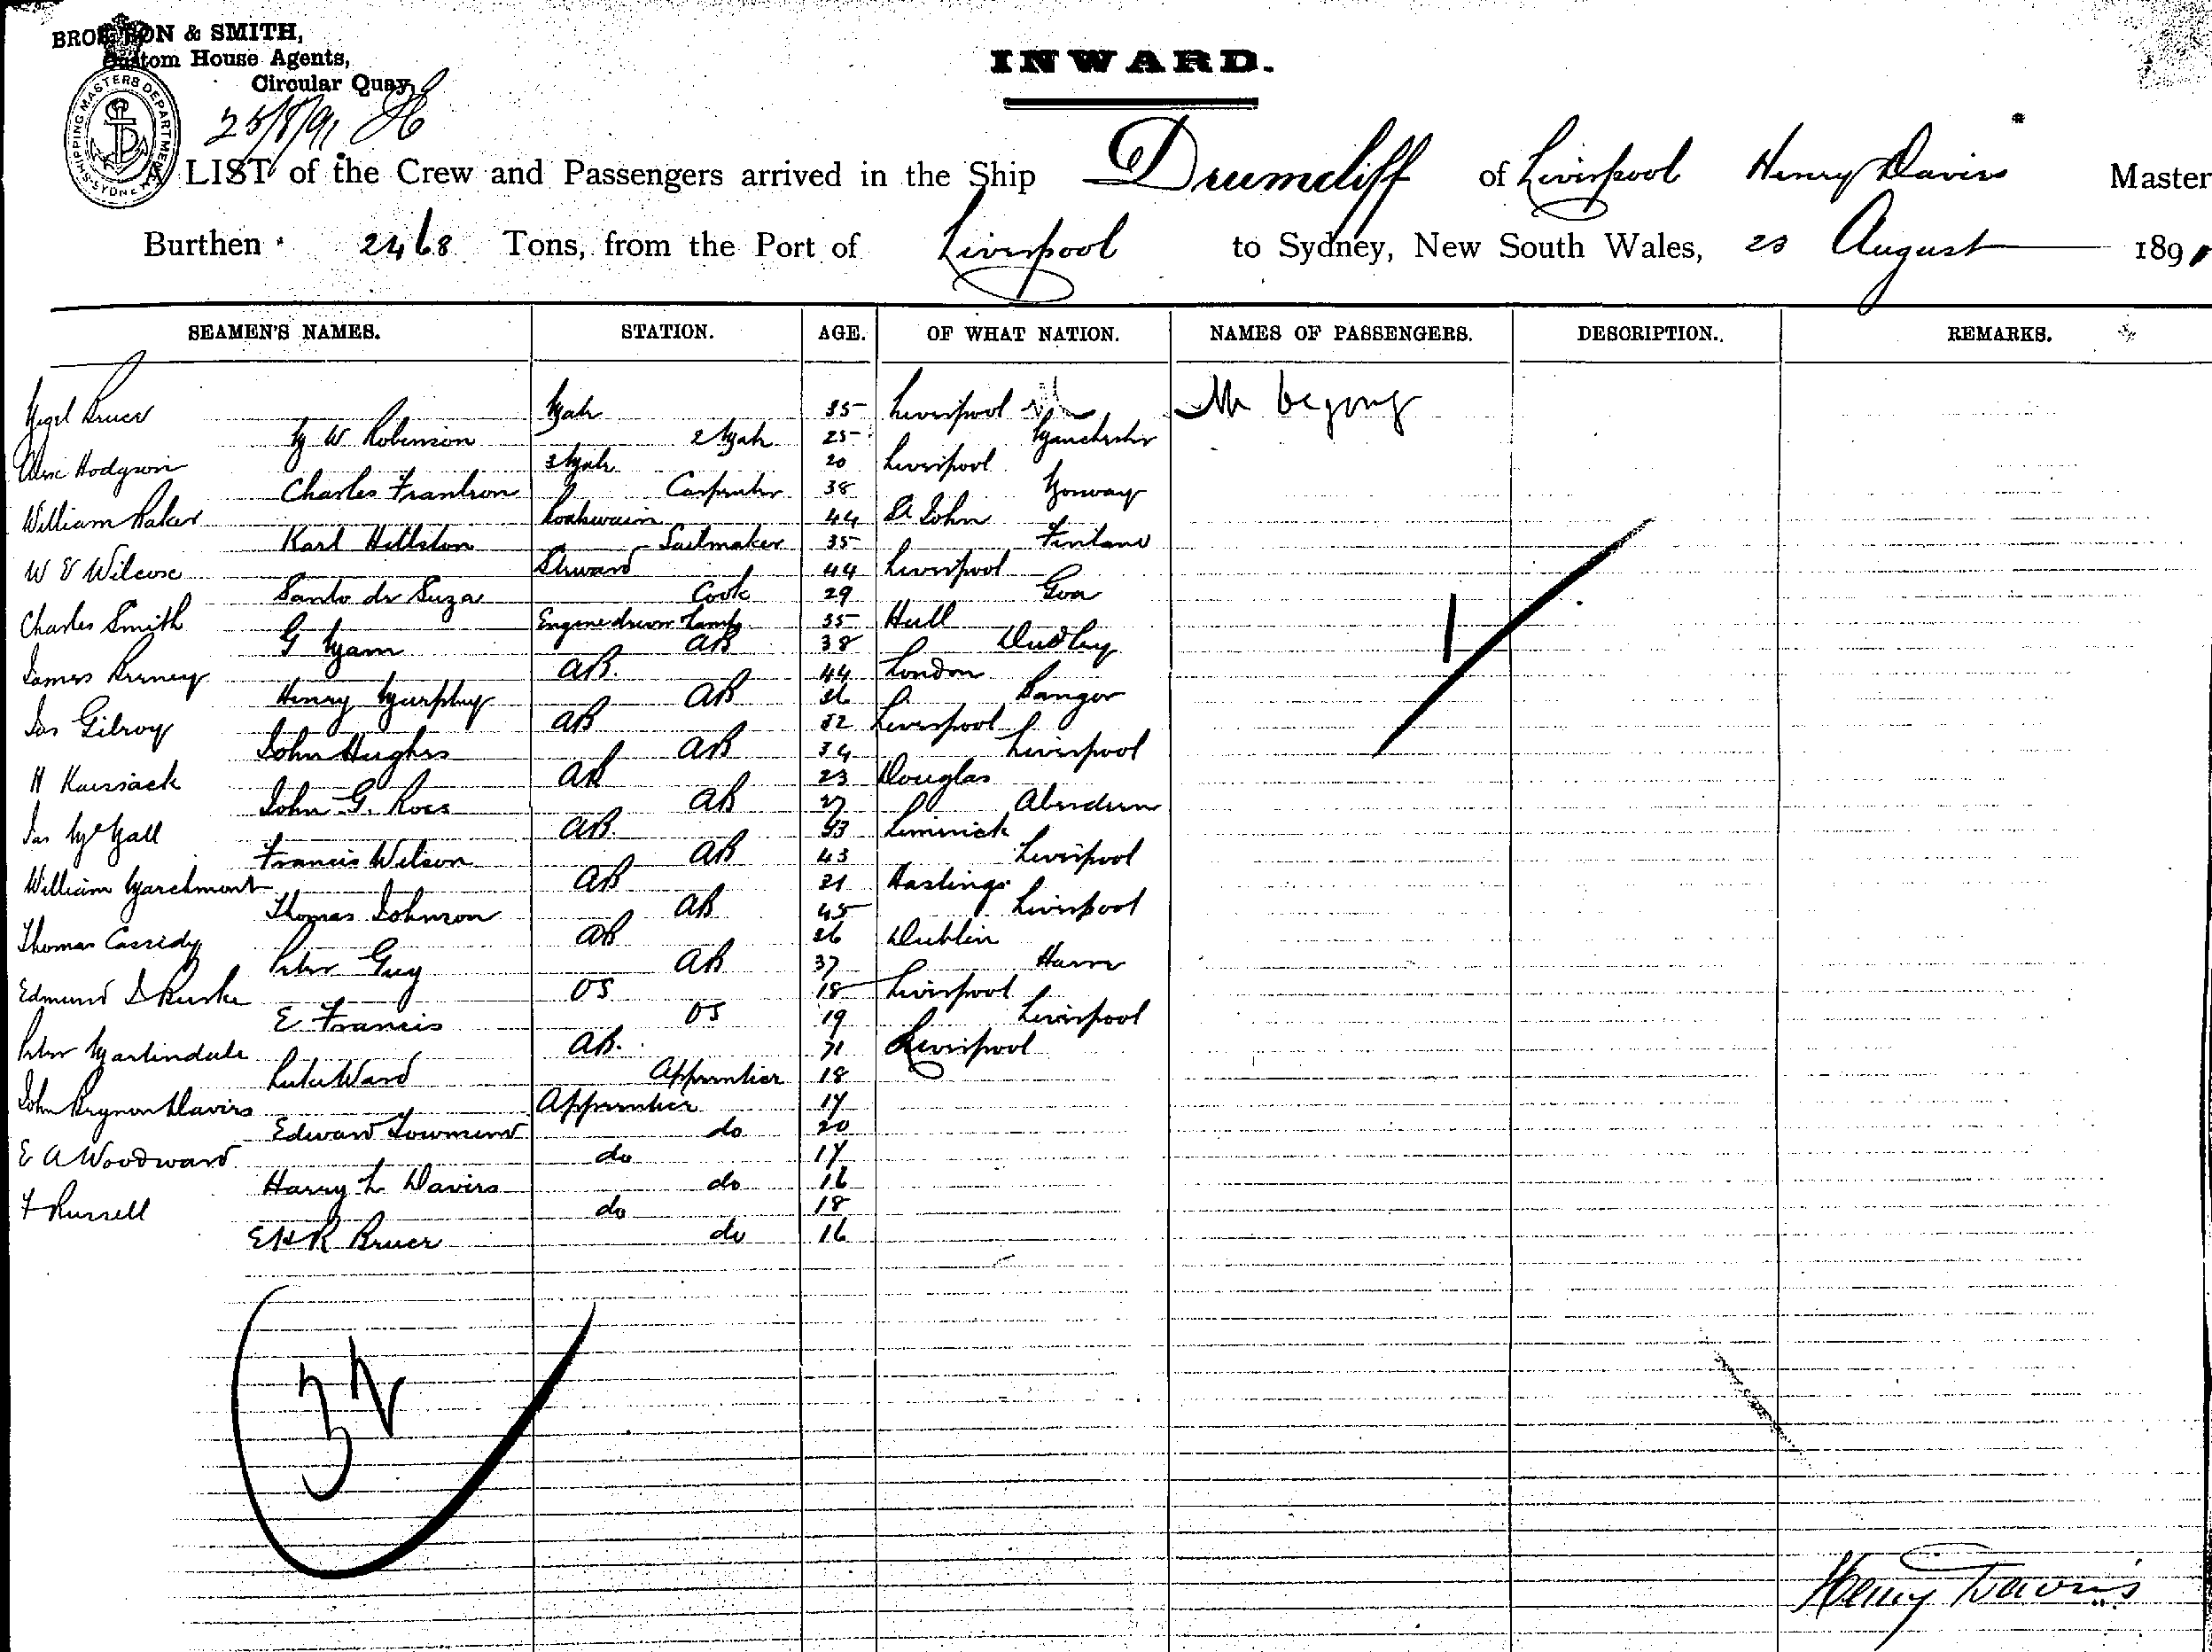 BRO & SMITH,
Custom House Agents,
Circular Quay,
SHIPPING MASTERS DEPARTMENT SYDNEY
25/8/91
INWARD.
A LIST of the Crew and Passengers arrived in the Ship Drumcliff of Liverpool Henry Davies Master
Burthen 2468 Tons, from the Port of Liverpool to Sydney, New South Wales, 25 August 1891
SEAMEN'S NAMES. STATION. AGE. OF WHAT NATION. NAMES OF PASSENGERS. DESCRIPTION. REMARKS.
Nigel Bruce Mate 35 Liverpool
M W Robinson 2 Mate 25 Manchester
Alex Hodgson 3 Mate 20 Liverpool
Charles Carpenter 38 Norway
William Baker Boatswain 44 St John
Karl Sailmaker 35 Finland
W E Wilcox Steward 44 Liverpool
Santo de Suza Cook 29 Goa
Charles Smith Enginedriver Lamp 35 Hull
G Mann AB 38 Dudley
James AB. 44 London
Henry Murphy AB 26 Bangor
Jas Gilroy AB 52 Liverpool
John Hughes AB 34 Liverpool
H AB 23 Douglas
John G. Ross AB 27 Aberdeen
Jas McNall AB 43 Limirick
Francis Wilson AB 43 Liverpool
William Marchmont AB 21 Hastings
Thomas Johnson AB 45 Liverpool
Thomas Cassidy AB 26 Dublin
Peter Guy AB 37 Havre
Edmund J Burke OS 18 Liverpool
E Francis OS 19 Liverpool
Peter Martindale AB. 71 Liverpool
Luke Ward Apprentice 18
John Davies Apprentice 17
Edward Townsend do 20
E A Woodward do 17
Harry L Davies do 16
F Russell do 18
EHR Bruce do 16
32
Henry Davies